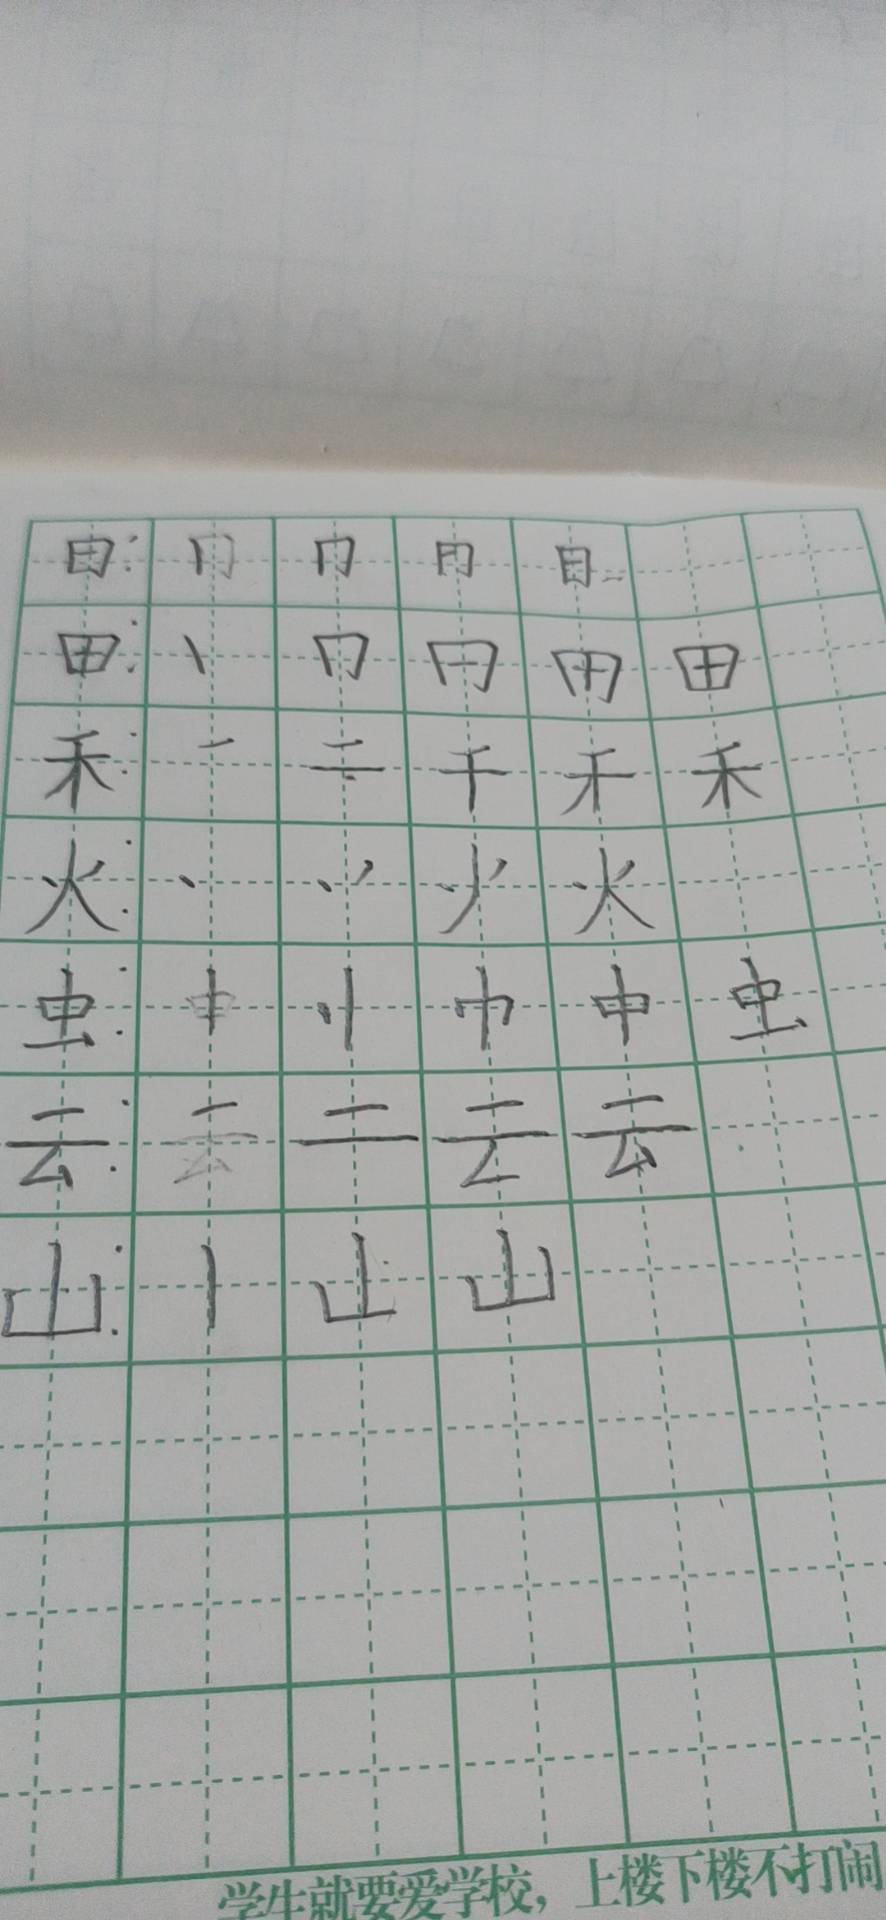 目: 丨 冂 月 目
田: 丶 冂 田
禾: 一 二 千 禾 禾
火: 丶 丷 火
虫: 丨 巾 中 虫
云: 一 二 云
山: 丨 山
学生就要爱学校，上楼下楼不打闹